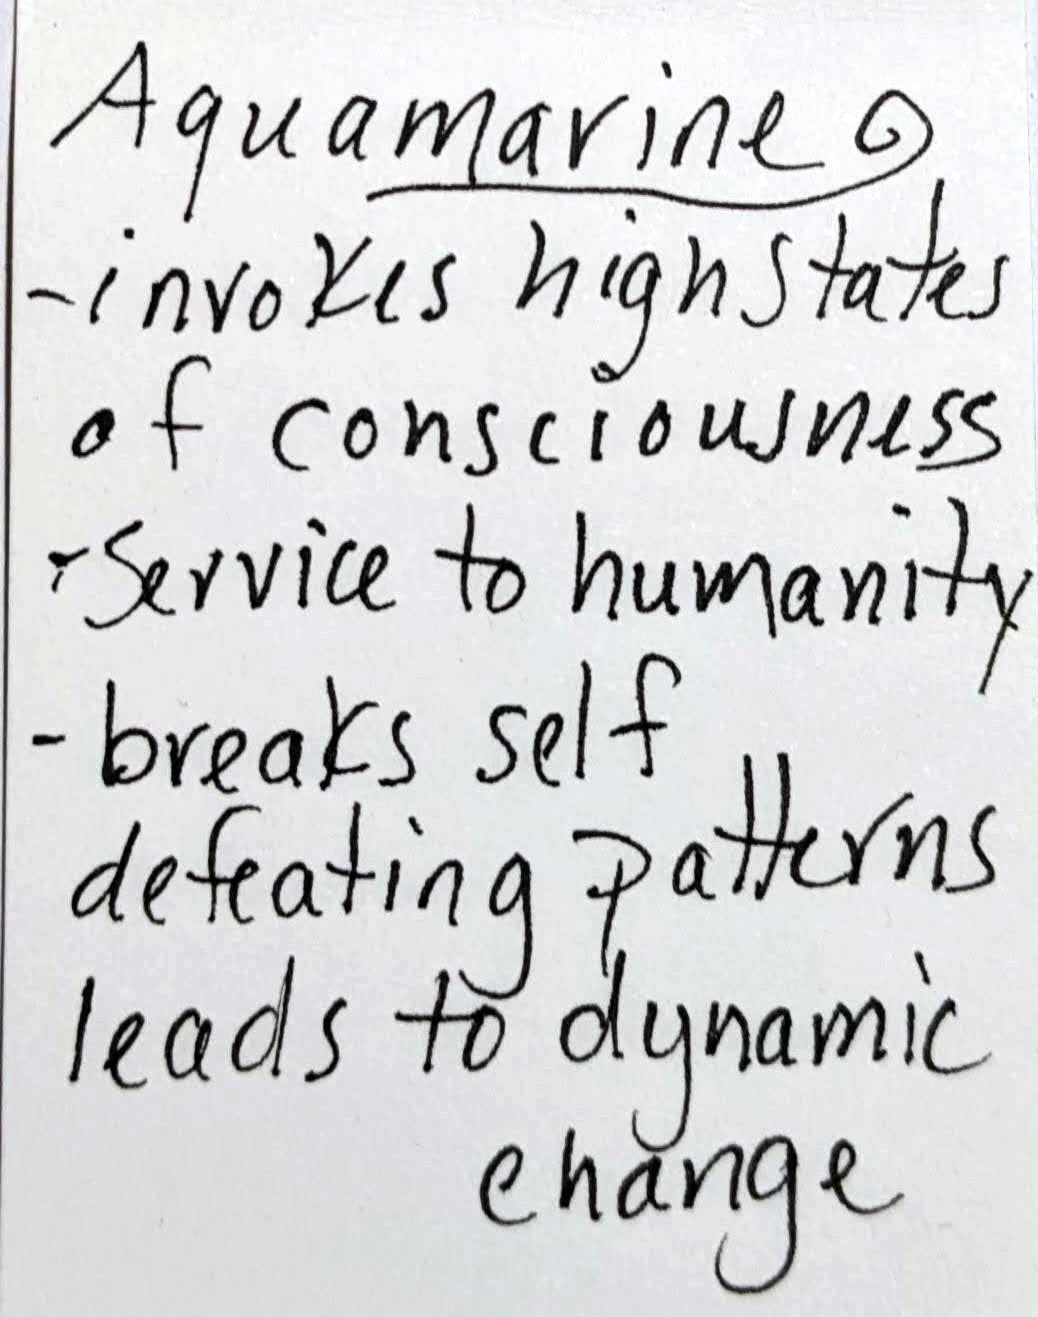 Aquamarine
-invokes high states
of consciousness
-Service to humanity
-breaks self
defeating patterns
leads to dynamic
change